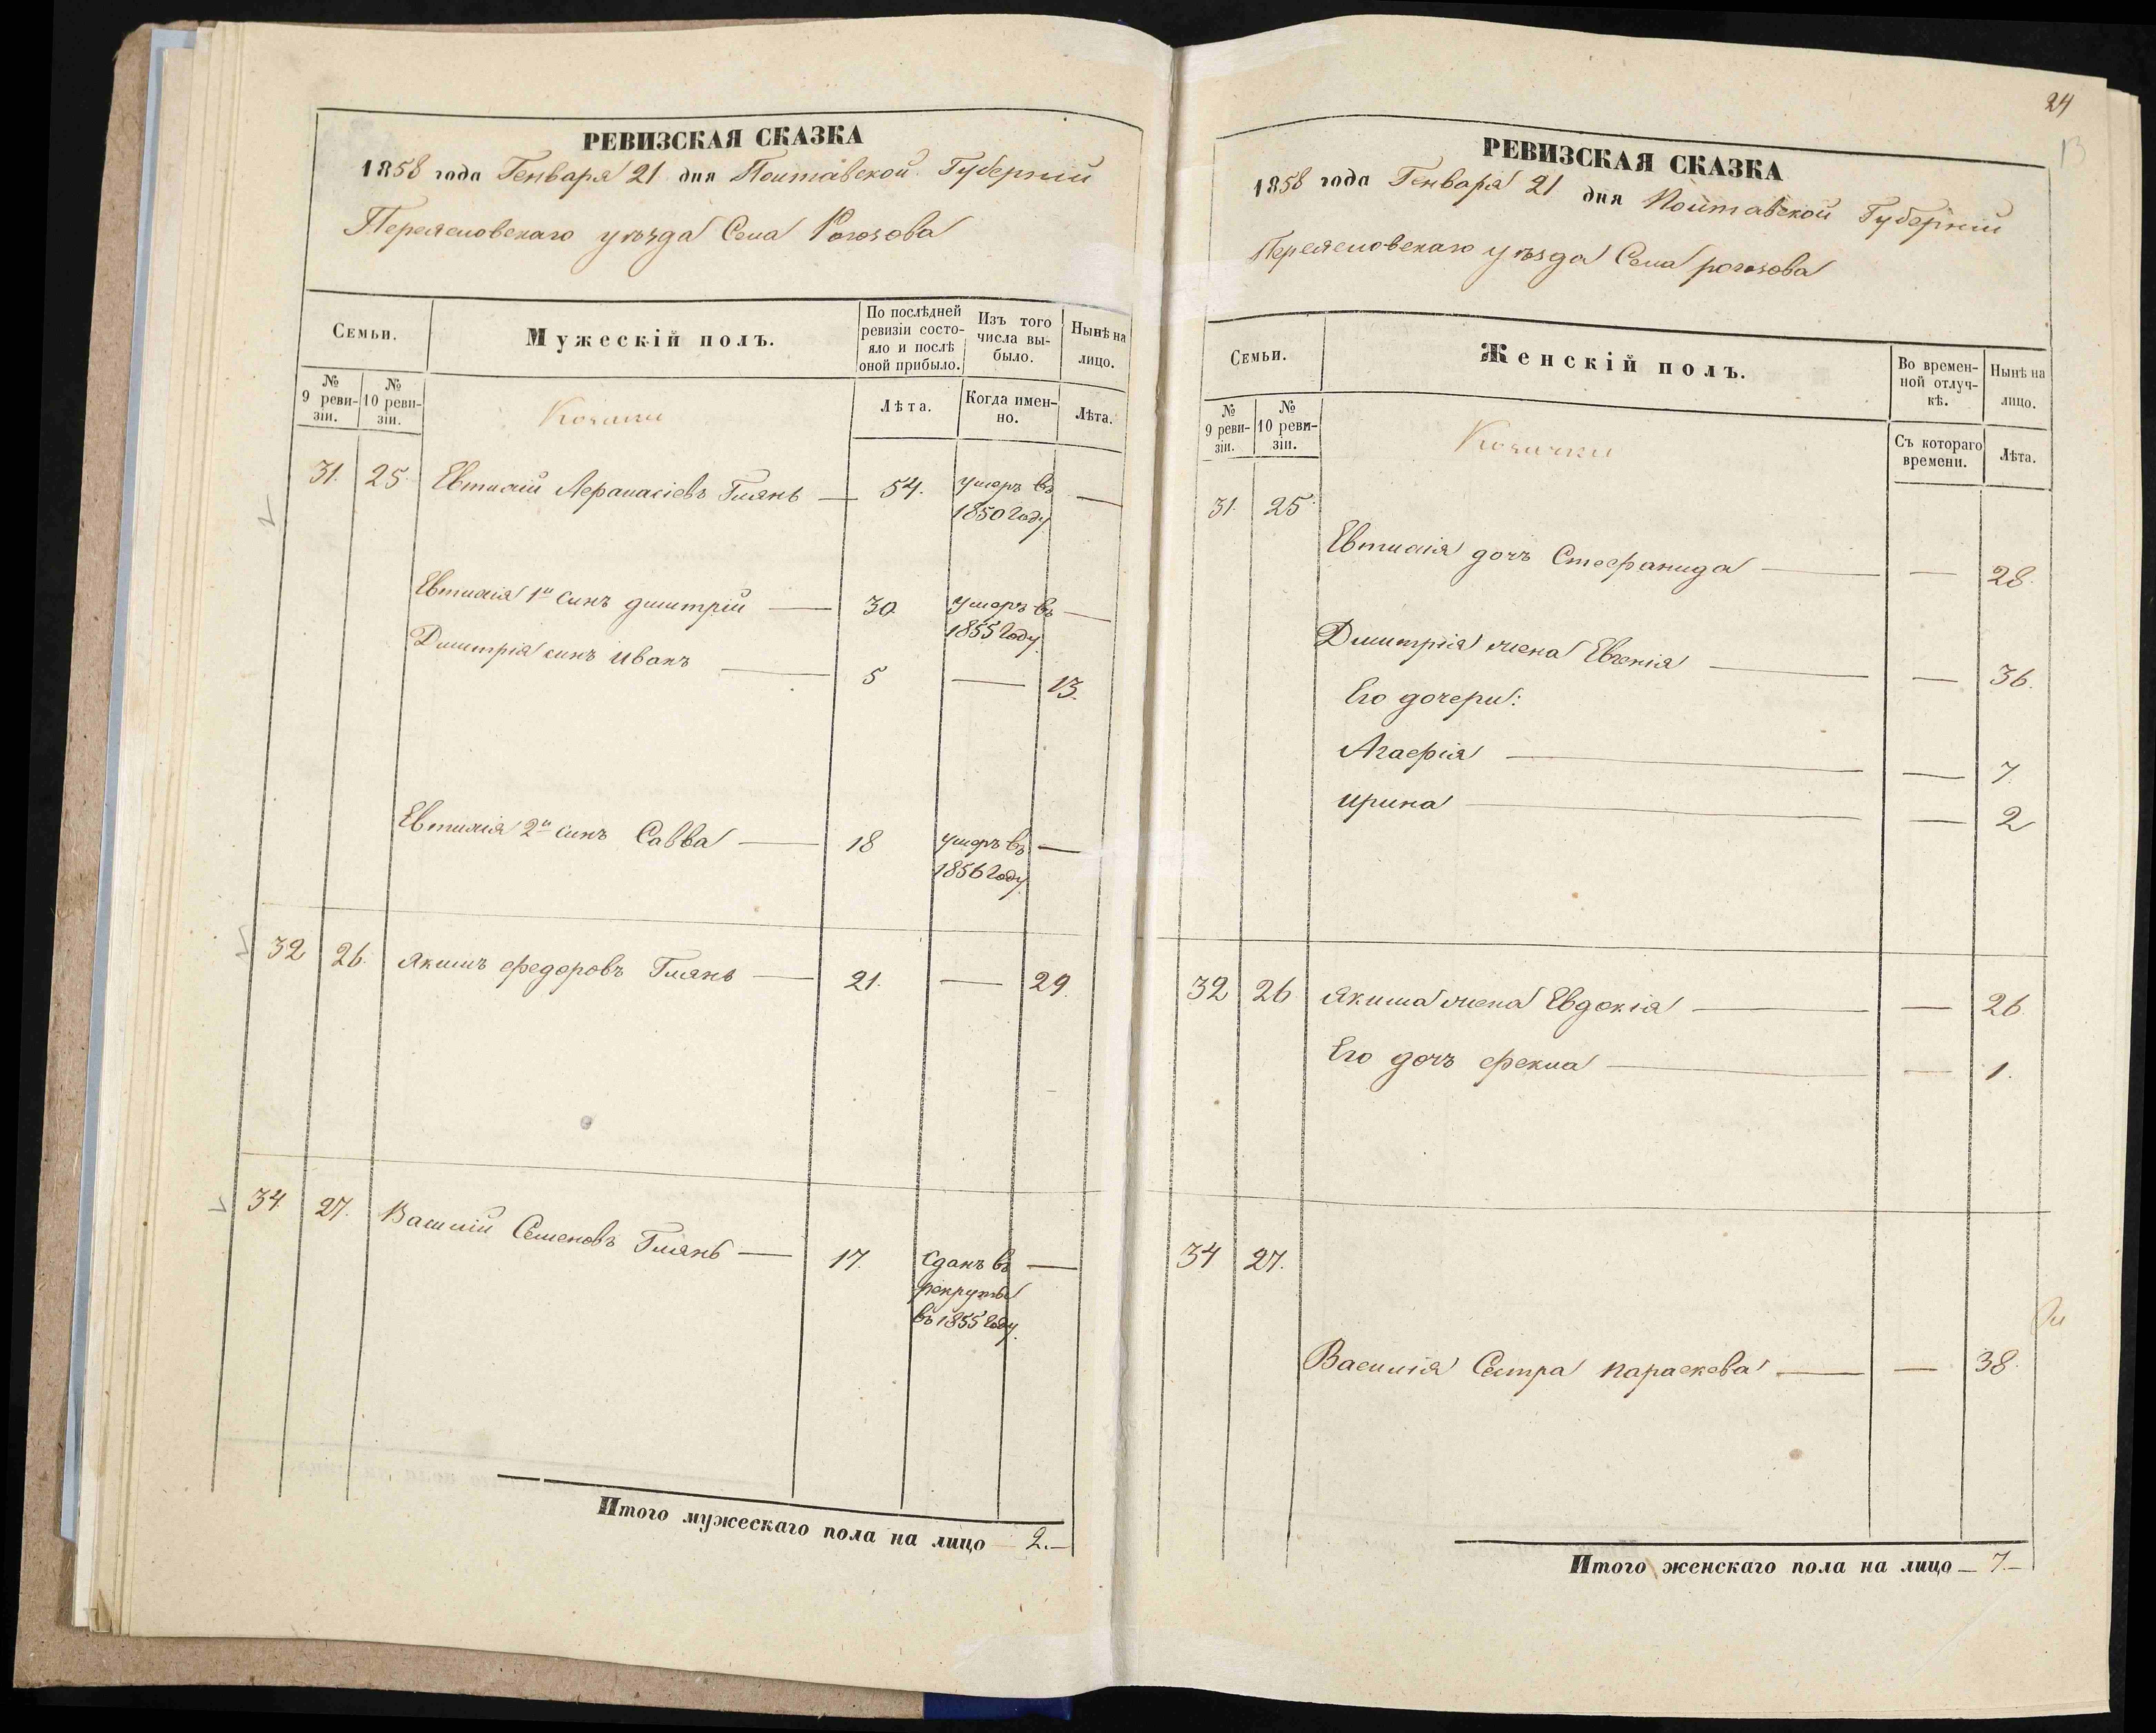 РЕВИЗСКАЯ СКАЗКА
1858 года Генваря 21 дня Полтавской Губерніи
Переясловскаго уѣзда Села Рогозова
Семьи.
Мужескій полъ.
По послѣдней ревизіи состояло и послѣ оной прибыло.
Изъ того числа выбыло.
Нынѣ на лицо.
№ 9 ревизіи.
№ 10 ревизіи.
Козаки
Лѣта.
Когда именно.
Лѣта.
31. 25. Евтихій Афанасіевъ Глянь — 54. умеръ въ —
1850 Году
Евтихія 1й синъ дмитрій — 30. умеръ въ —
1855 Году.
Дмитрія синъ иванъ — 5 — 13.
Евтихія 2й синъ Савва — 18 умеръ въ —
1856 Году.
32 26. якимъ федоровъ Глянь — 21. — 29.
34. 27. Василій Семеновъ Глянь — 17. Сданъ въ —
рекруты
въ 1855 Году.
Итого мужескаго пола на лицо — 2. —
24
13
РЕВИЗСКАЯ СКАЗКА
1858 года Генваря 21 дня Полтавской Губерніи
Переясловскаго уѣзда Села рогозова
Семьи.
Женскій полъ.
Во временной отлучкѣ.
Нынѣ на лицо.
№ 9 ревизіи.
№ 10 ревизіи.
Козачки
Съ котораго времени.
Лѣта.
31. 25.
Евтихія дочъ Стефанида — — 28.
Дмитрія жена Евгенія — — 36.
Его дочери:
Агафія — — 7.
ирина — — 2
32 26 якима жена Евдокія — — 26.
Его дочъ фекла — — 1.
34 27.
Василія Сестра параскева — — 38.
Итого женскаго пола на лицо — 7. —